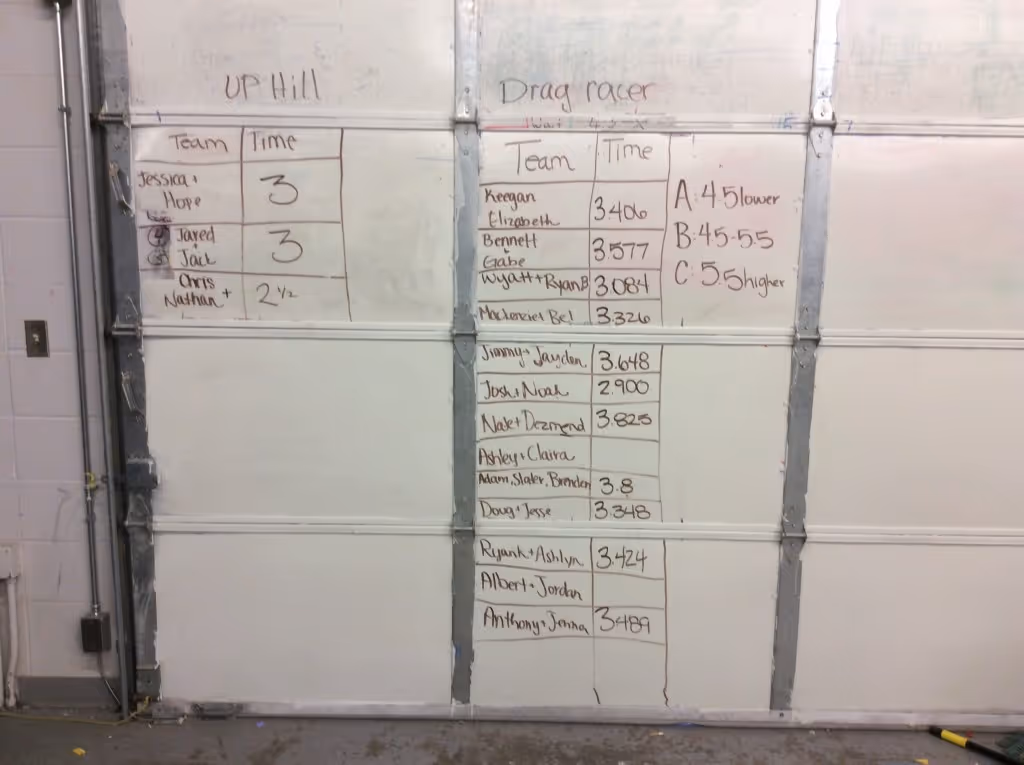 UP Hill
Team Time
Jessica +
Hope 3
Jared
+
Jack 3
Chris
Nathan + 2 1/2
Drag racer
Team Time
Keegan
Elizabeth 3.406
Bennett
+
Gabe 3.577
Wyatt + Ryan B 3.084
Mackenzie + 3.326
Jimmy + Jayden 3.648
Josh + Noah 2.900
Nate + Dezmend 3.825
Ashley + Claira
Adam, Slater, Brenden 3.8
Doug + Jesse 3.348
Ryank + Ashlyn 3.424
Albert + Jordan
Anthony + Jenna 3.489
A: 4.5 lower
B: 4.5-5.5
C: 5.5 higher